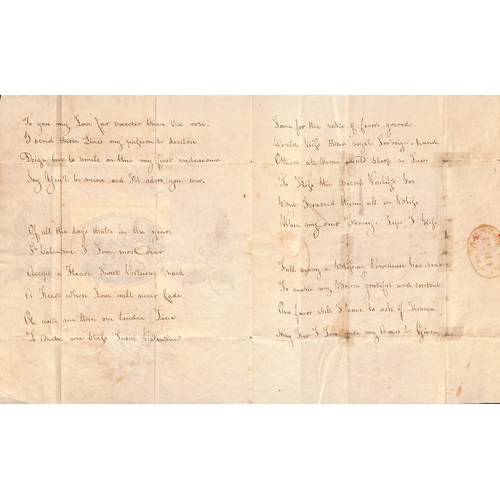 To you my Love far sweeter than the rose.
I send these Lines my passion to disclose
Deign but to smile on this my first endeavour
Say You'l be mine and I'll adore you ever.
Of all the days thats in the year
St Valentine I Love most dear
Accept a Heart Sweet Virtuous Maid
A Heart whose Love will never fade
Oh write me then one tender Line
To Bless one Bless Saint Valentine
Some for the sake of favors graced
Would kiss some royal Sovereign's hand
Others
To Kiss the Pontiffs Toe
But I exceed them all in Bliss
When my dear Lips I Kiss
Full many a Blessing Providence has sent
To make my Bosom grateful and content
One favor still I have to ask of Heaven
May Her I Love unto my Arms be Given